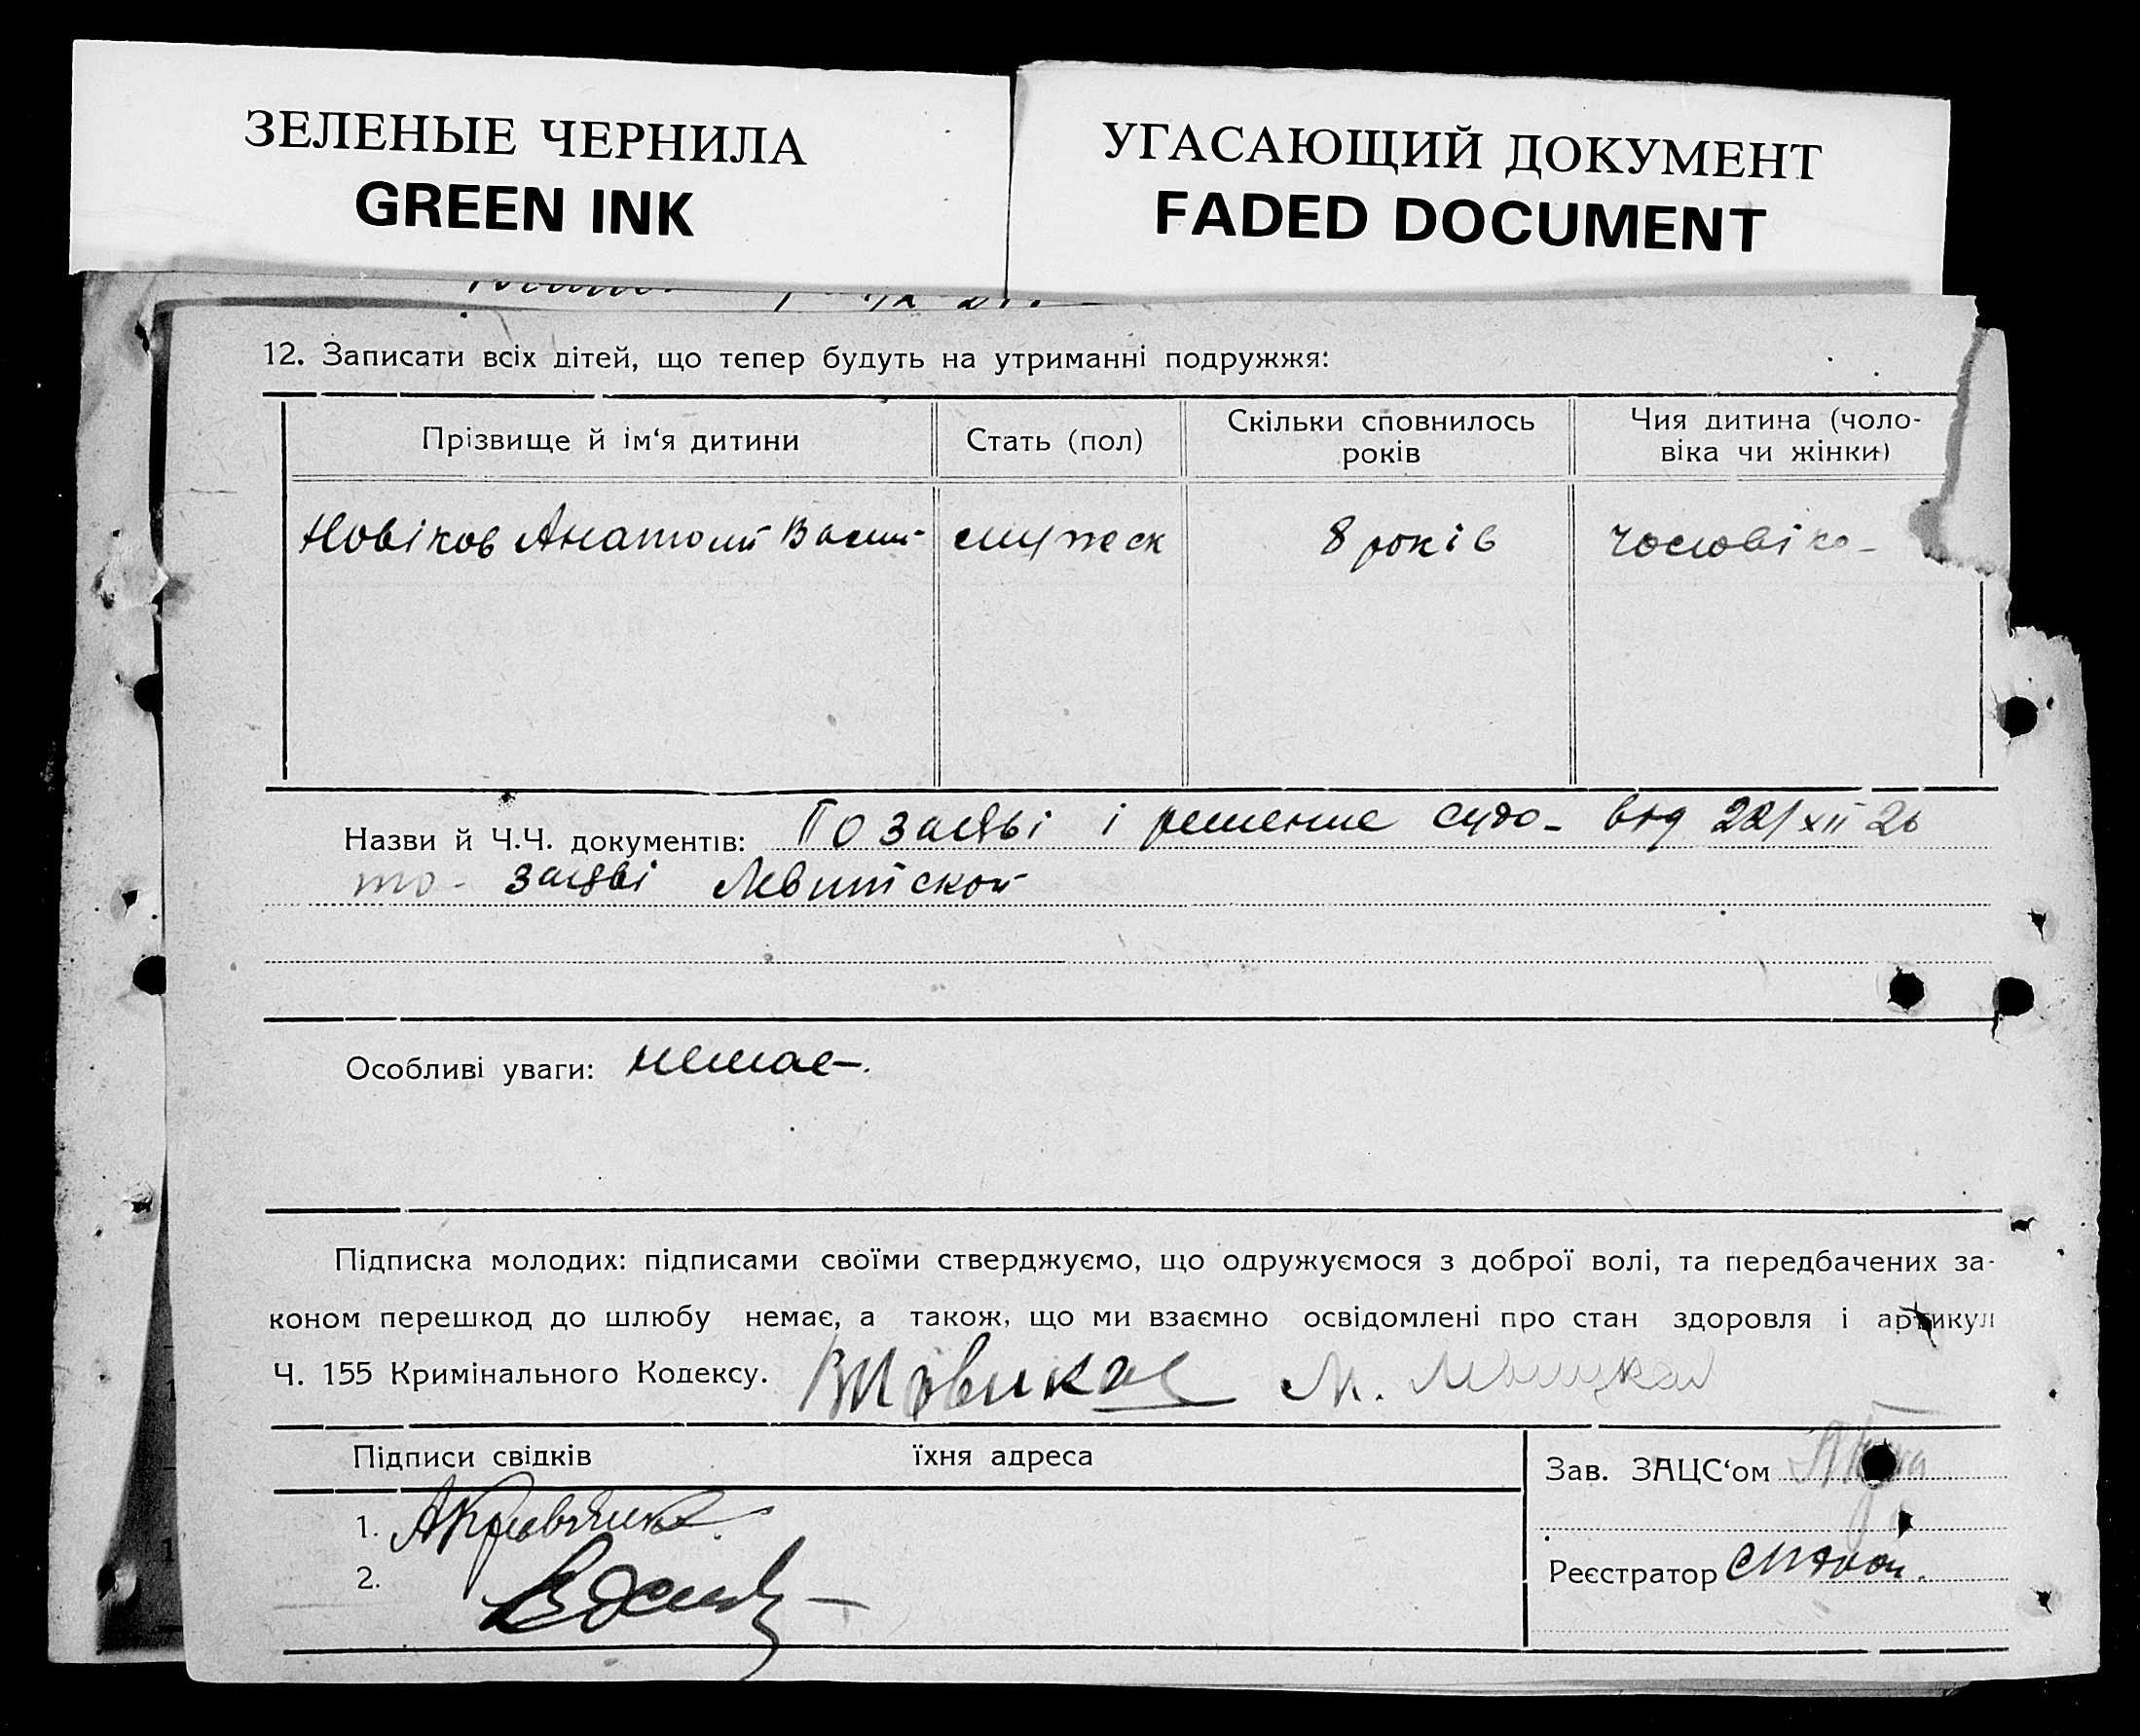 ЗЕЛЕНЫЕ ЧЕРНИЛА
GREEN INK
УГАСАЮЩИЙ ДОКУМЕНТ
FADED DOCUMENT
12. Записати всіх дітей, що тепер будуть на утриманні подружжя:
Прізвище й ім‘я дитини
Стать (пол)
Скільки сповнилось
років
Чия дитина (чоло-
віка чи жінки)
Новіков Анатолий Васил- мужеск 8 років чоловіка-
Назви й Ч.Ч. документів: По заяві і решение суда- від 22/XII 26
заяві
Особливі уваги: немає-.
Підписка молодих: підписами своїми стверджуємо, що одружуємося з доброї волі, та передбачених за-
коном перешкод до шлюбу немає, а також, що ми взаємно освідомлені про стан здоровля і артикул
Ч. 155 Кримінального Кодексу. ВНовиков М.
Підписи свідків
їхня адреса
Зав. ЗАЦС‘ом
1.
2.
Реєстратор